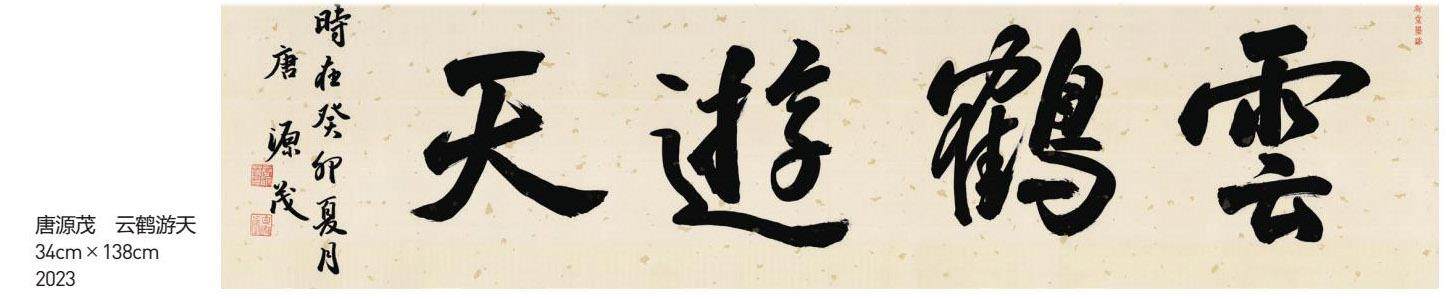 雲鶴遊天
時在癸卯夏月
唐源茂
唐源茂 云鹤游天
34cm×138cm
2023